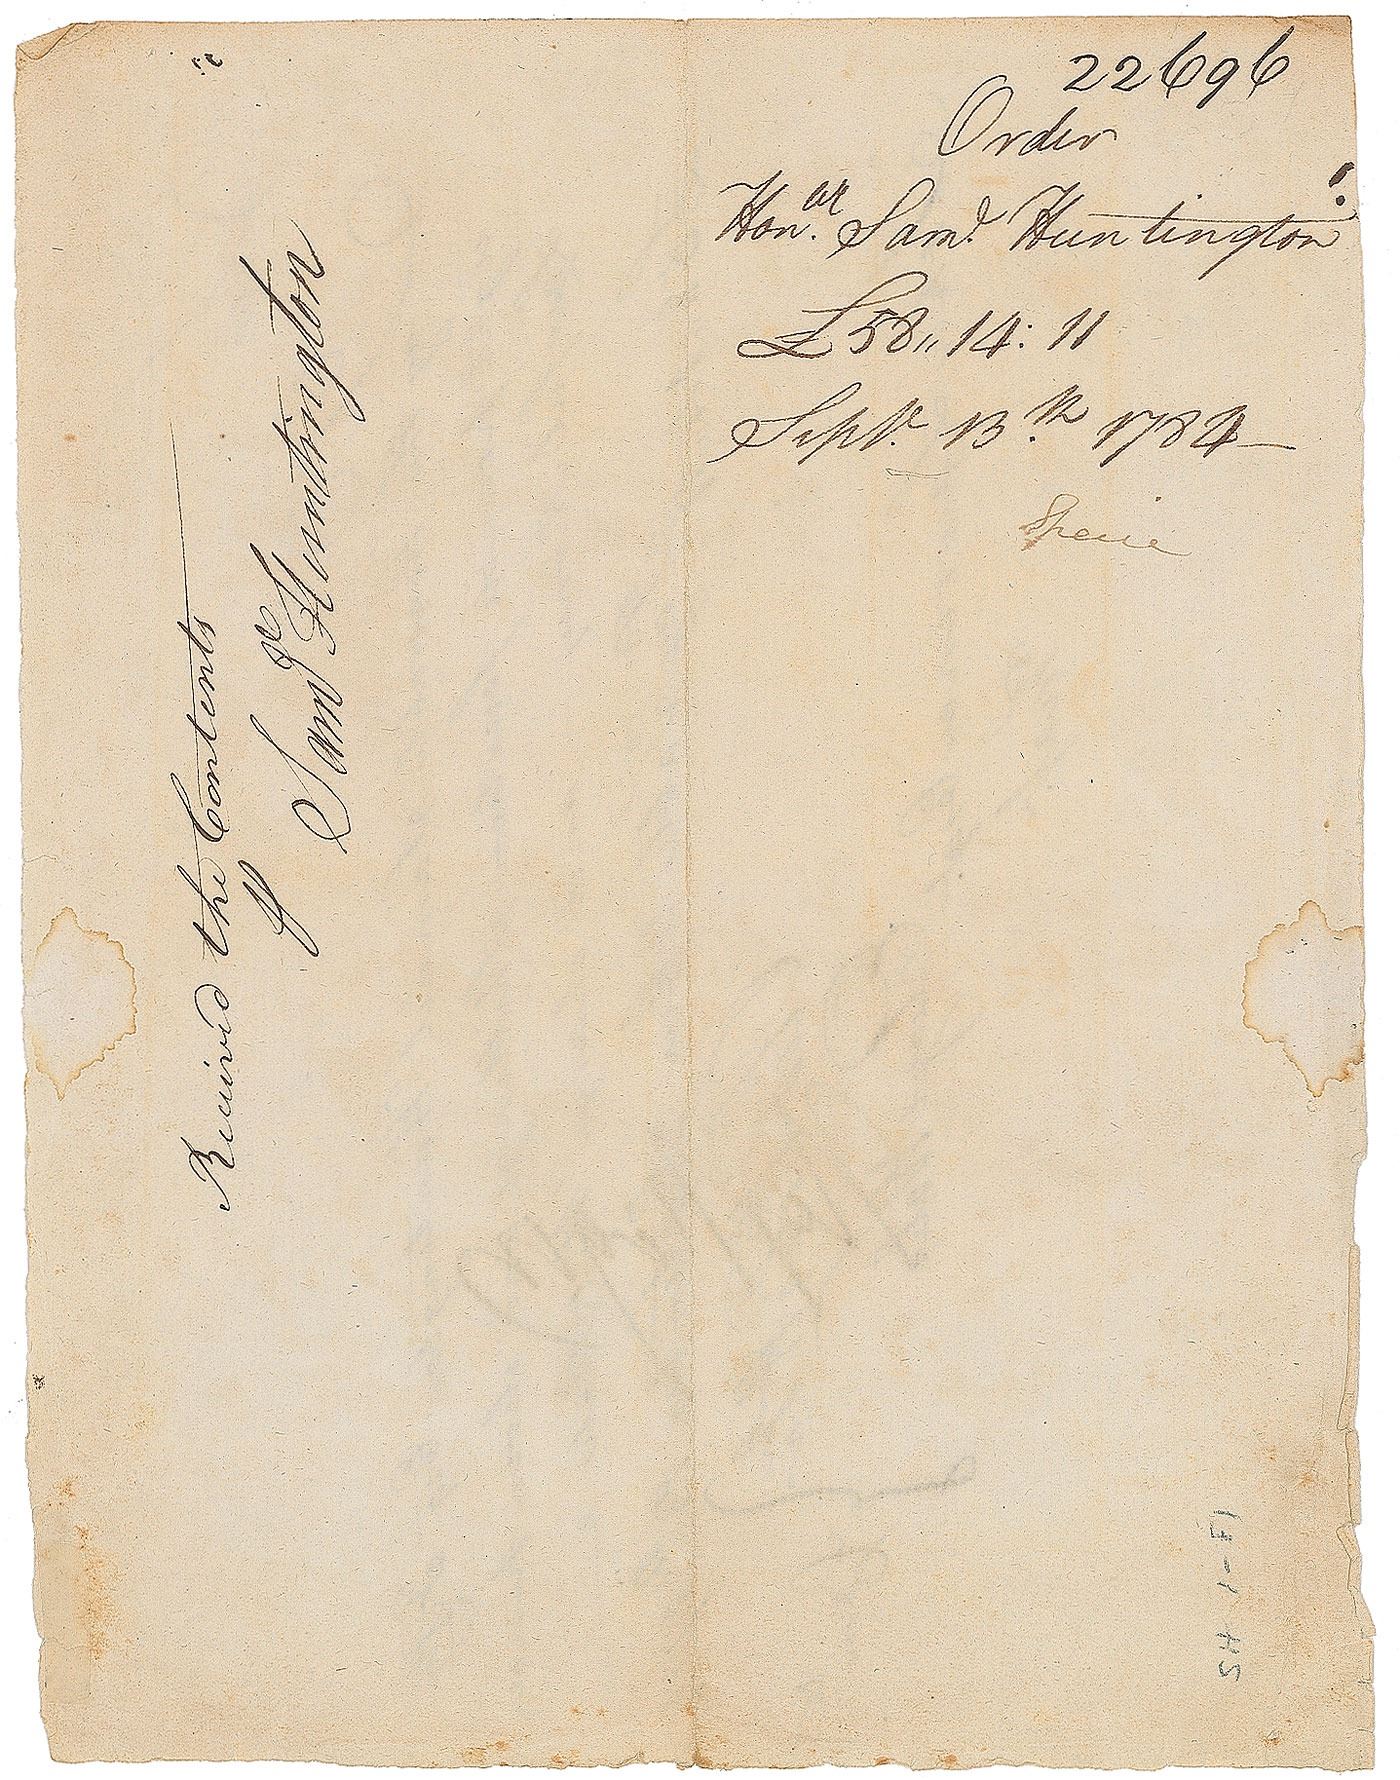 22696
Order
Hon.ble Sam.l Huntington
£ 58,, 14 : 11
Sept.r 13.th 1784
Specie
Received the Contents
Sam.el Huntington